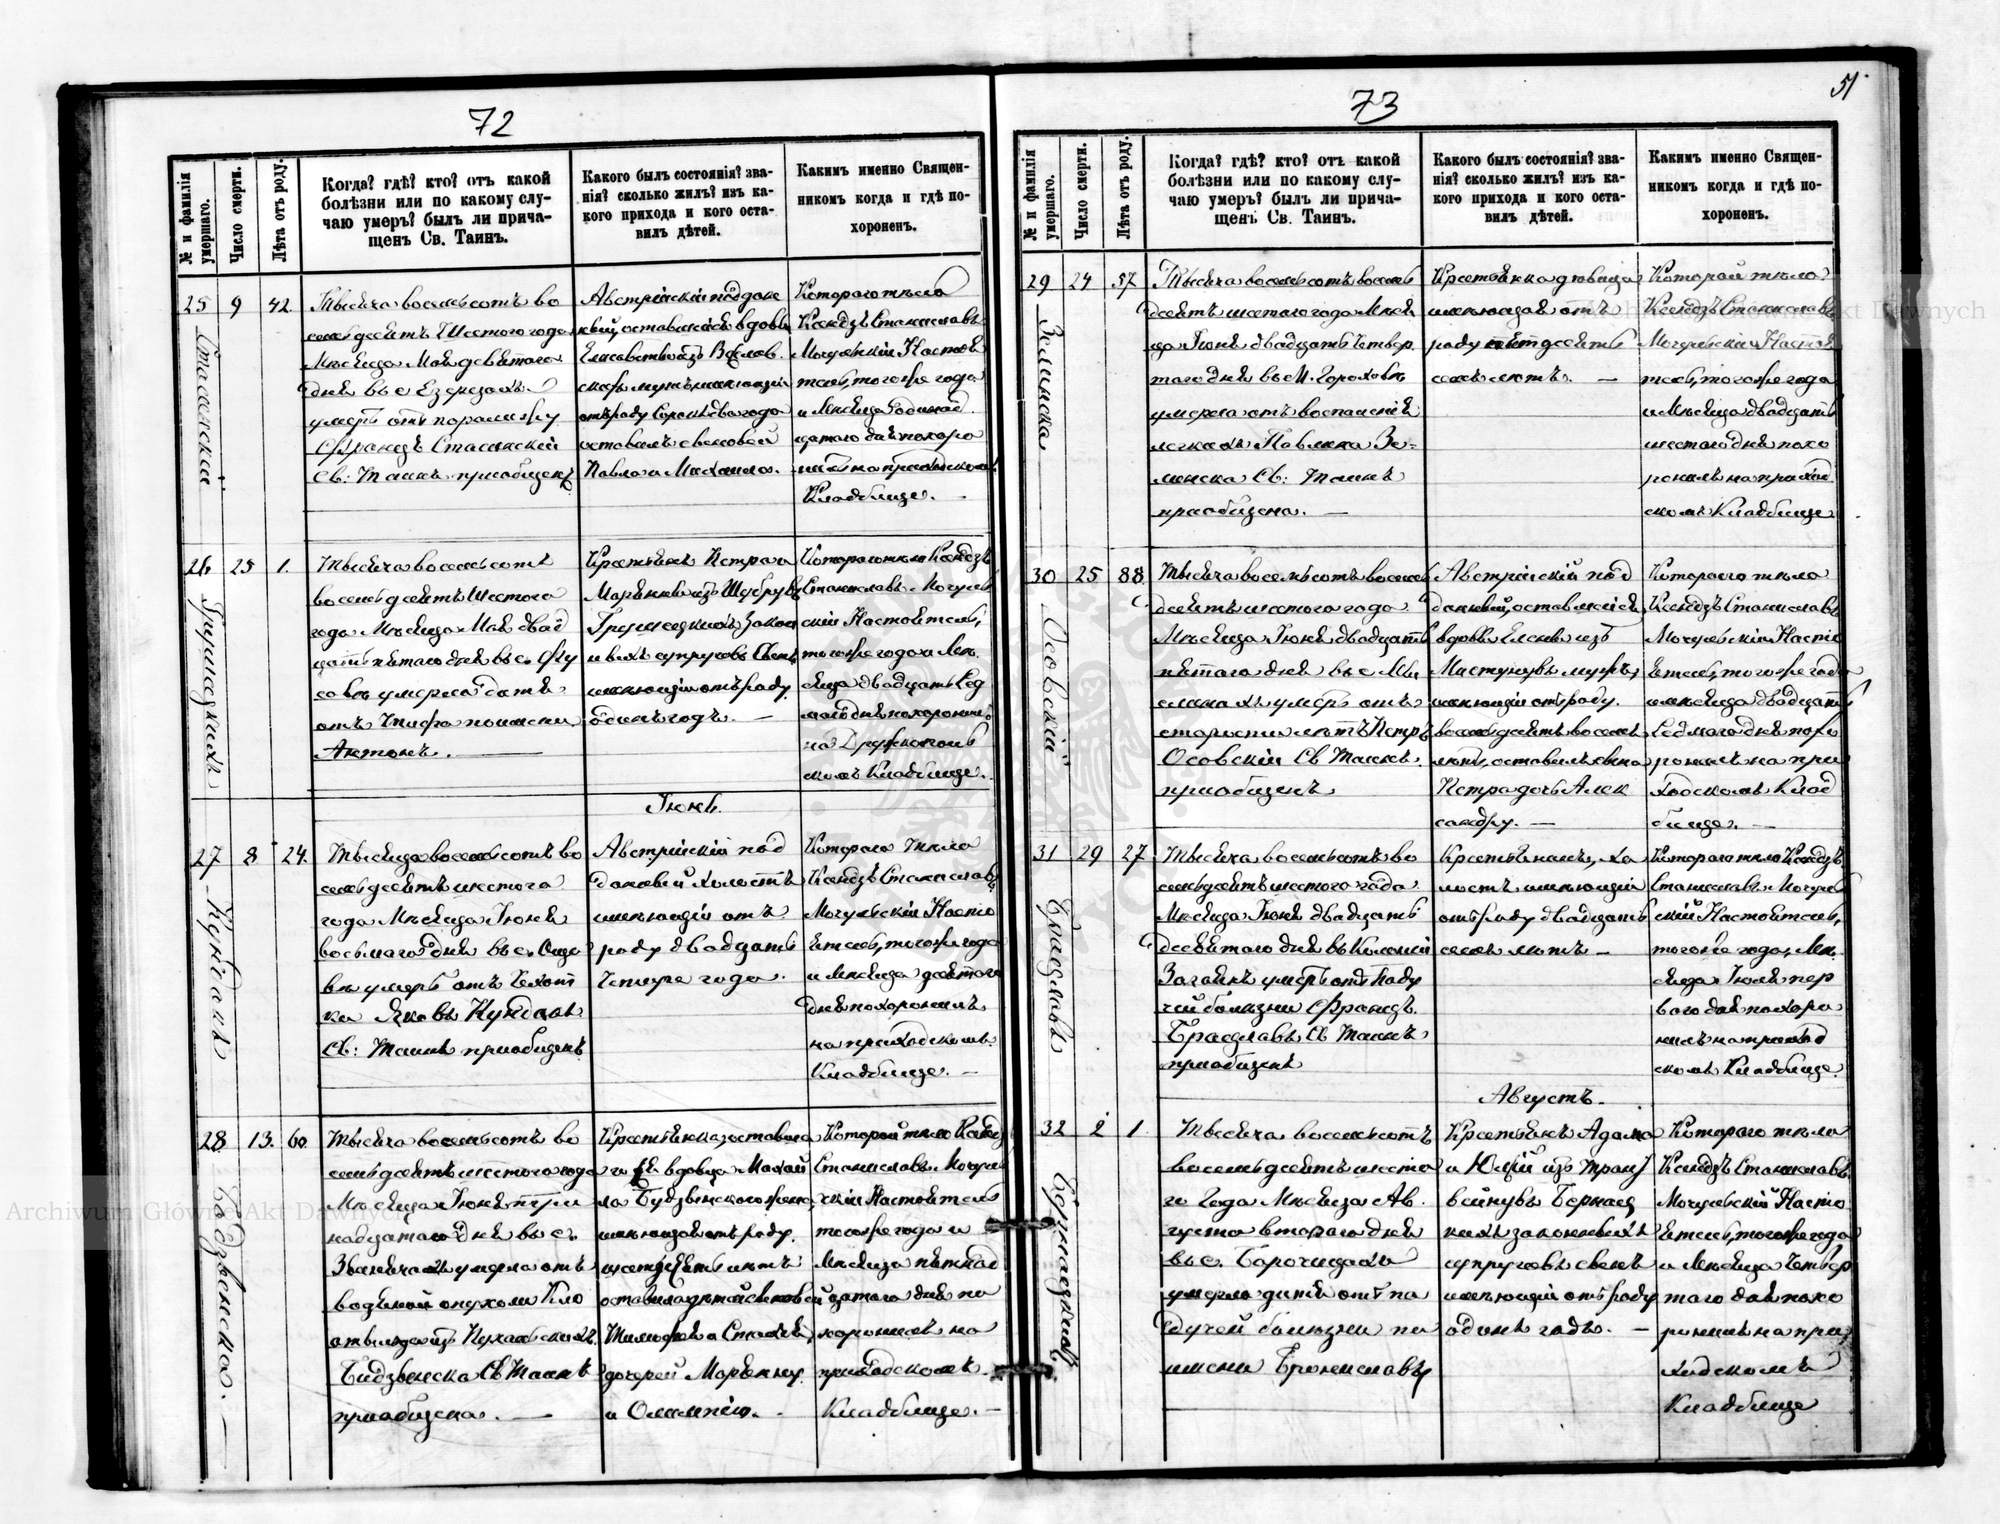 72
№ и фамилія умершаго.
Число смерти.
Лѣта отъ роду.
Когда? гдѣ? кто? отъ какой
болѣзни или по какому слу-
чаю умеръ? былъ ли прича-
щенъ Св. Таинъ.
Какого былъ состоянія? зва-
нія? сколько жилъ? изъ ка-
кого прихода и кого оста-
вилъ дѣтей.
Какимъ именно Священ-
никомъ когда и гдѣ по-
хороненъ.
25
9
42.
Тысяча восемьсотъ во
семьдесятъ Шестого года
Мѣсяца Мая девятаго
дня въ с
умеръ отъ
Францъ Сталинскій
Св: Таинъ пріобщенъ
Австрійскій поддан
ный, оставшійся вдовы
Елисаветы изъ
мужъ, имѣющій
отъ роду сорокъ два года
оставилъ сыновей
Павла и Михаила.
Котораго тѣло
Ксендзъ Станиславъ
Могульскій Настоя
тель, того же года
и Мѣсяца Одинад
цатаго дня похоро
нилъ на приходскомъ
Кладбище.
26
25
1.
Тысяча восемьсотъ
восемьдесятъ Шестого
года Мѣсяца Мая двад
цать пятаго дня въ с.
умерло дитя
отъ тифа по имени
Антонъ.
Крестьянъ Петра и
Марьянны изъ
законн
ыхъ супруговъ Сынъ
имѣющій отъ роду
одинъ годъ.
Котораго тѣло Ксендзъ
Станиславъ Могуль
скій Настоятель,
того же года и Мѣ
сяца двадцать сед
маго дня похоронилъ
на Дружкополь
скомъ Кладбище.
Іюнь.
27
8
24.
Кундакъ
Тысяча восемьсотъ во
семьдесятъ шестого
года Мѣсяца Іюня
восьмаго дня въ с.
умеръ отъ Чахот
ки Яковъ Кундакъ
Св: Таинъ пріобщенъ
Австрійскій под
данный холостъ
имѣющій отъ
роду двадцать
четыре года.
Котораго тѣло
Ксендзъ Станиславъ
Могульскій Насто
ятель, того же года
и Мѣсяца девятаго
дня похоронилъ
на приходскомъ
Кладбище.
28
13.
60.
Тысяча восемьсотъ во
семьдесятъ шестого года
Мѣсяца Іюня три
надцатаго дня въ с.
Званячахъ умерла отъ
водяной опухоли Кло
тильда изъ
Бидзвенска Св Таинъ
пріобщена.
Крестьянка, оставша
го ся вдовца Михай
ла жена,
имѣющая отъ роду
шестьдесятъ лѣтъ
оставила дѣтей Сыновей
Тимофея и
дочерей Марьянну
и Олимпію.
Которой тѣло Ксендзъ
Станиславъ Могуль
скій Настоятель
того же года и
Мѣсяца пятнад
цатаго дня по
хоронилъ на
приходскомъ
Кладбище.
73
51
№ и фамилія умершаго.
Число смерти.
Лѣта отъ роду.
Когда? гдѣ? кто? отъ какой
болѣзни или по какому слу-
чаю умеръ? былъ ли прича-
щенъ Св. Таинъ.
Какого былъ состоянія? зва-
нія? сколько жилъ? изъ ка-
кого прихода и кого оста-
вилъ дѣтей.
Какимъ именно Священ-
никомъ когда и гдѣ по-
хороненъ.
29
24
57
Зелинска
Тысяча восемьсотъ восемь
десятъ шестого года Мѣся
ца Іюня двадцать четвер
таго дня въ м. Гороховъ
умерла отъ воспаленія
легкихъ Павлина Зе-
линска Св: Таинъ
пріобщена.
Крестьянка дѣвица
имѣющая отъ
роду пятдесятъ
семь лѣтъ.
Которой тѣло
Ксендзъ Станиславъ
Могульскій Настоя
тель, того же года
и Мѣсяца двадцать
шестаго дня похо
ронилъ на приход
скомъ Кладбище
30
25
88.
Осовскій
Тысяча восемьсотъ восемь
десятъ шестого года
Мѣсяца Іюня двадцать
пятаго дня въ с
умеръ отъ
старости лѣтъ Петръ
Осовскій Св Таинъ
пріобщенъ
Австрійскій под
данный, оставшійся
вдовы Елены изъ
мужъ,
имѣющій отъ роду
восемьдесятъ восемь
лѣтъ, оставилъ сына
Петра дочь Алек
сандру.
Котораго тѣло
Ксендзъ Станиславъ
Могульскій Насто
ятель, того же года
и мѣсяца двадцать
седмаго дня похо
ронилъ на при
ходскомъ Клад
бище.
31
29
27
Браеславъ
Тысяча восемьсотъ во
семьдесятъ шестого года
Мѣсяца Іюня двадцать
девятаго дня въ Колоніи
умеръ отъ паду
чей болѣзни Францъ
Браеславъ Св Таинъ
пріобщенъ
Крестьянинъ, хо
лостъ имѣющій
отъ роду двадцать
семь лѣтъ
Котораго тѣло Ксендзъ
Станиславъ Могуль
скій Настоятель,
того же года, Мѣ
сяца Іюля пер
ваго дня похоро
нилъ на приход
скомъ Кладбище.
Августъ.
32
2
1
Тысяча восемьсотъ
восемьдесятъ шесто
го Года Мѣсяца Ав
густа втораго дня
въ с. Борочицахъ
умерло дитя отъ па
дучей болѣзни по
имени Брониславъ
Крестьянъ Адама
и Юліи изъ
законныхъ
супруговъ сынъ
имѣющій отъ роду
одинъ годъ.
Котораго тѣло
Ксендзъ Станиславъ
Могульскій Насто
ятель, того же года
и Мѣсяца четвер
таго дня похо
ронилъ на при
ходскомъ
Кладбище
Archiwum Główne Akt Dawnych